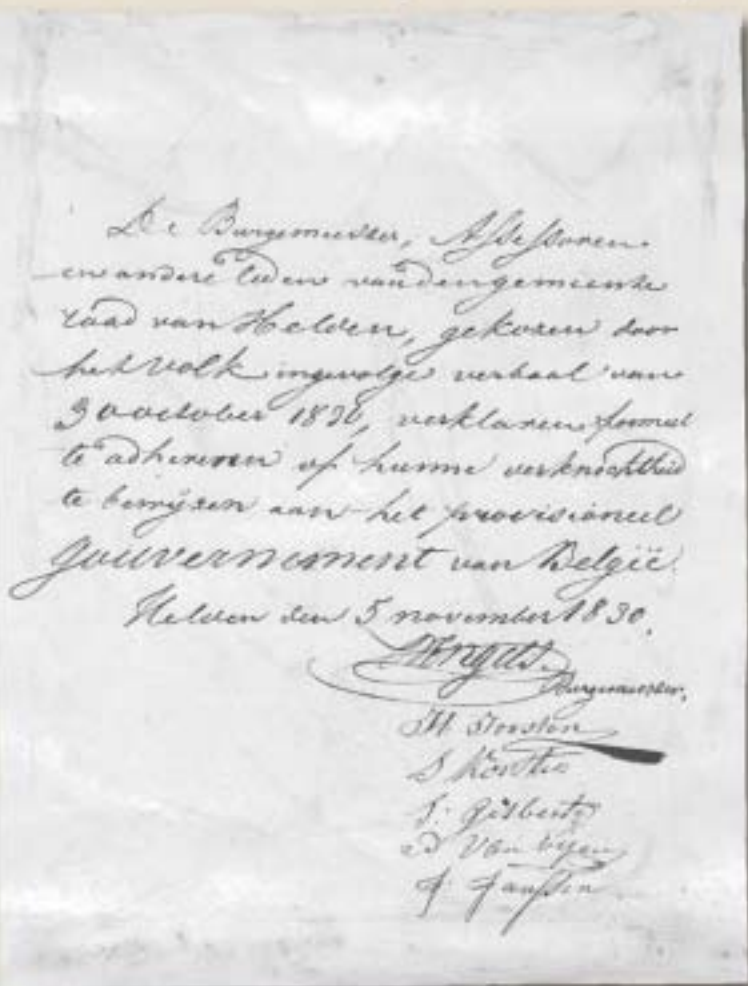 De Burgemeester, Assessoren
en andere leden van den gemeente
raad van Helden, gekozen door
het volk ingevolge verbaal van
30 october 1830, verklaren formeel
te adhereren of hunne verknochtheid
te bewijzen aan het provisioneel
gouvernement van België.
Helden den 5 november 1830.
Burgemeester.
H Joosten
S
J. Gisberts
Van
J. Janssen